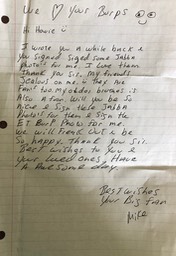 We ♡ Your Burps
Hi Howie
I wrote you a while back &
you signed some
Photos for me. I love them
Thank you sir. My friends
Jealous on me & they are
Fans too. My older brother is
Also a fan. Will you be so
Nice & Sign these
Photos for them & Sign the
ET Burp Photo for me.
we will Freak out & be
so happy. Thank you sir.
Best wishes to you &
your loved ones, Have
A Awesome day
Best wishes
Your Big fan
Mike